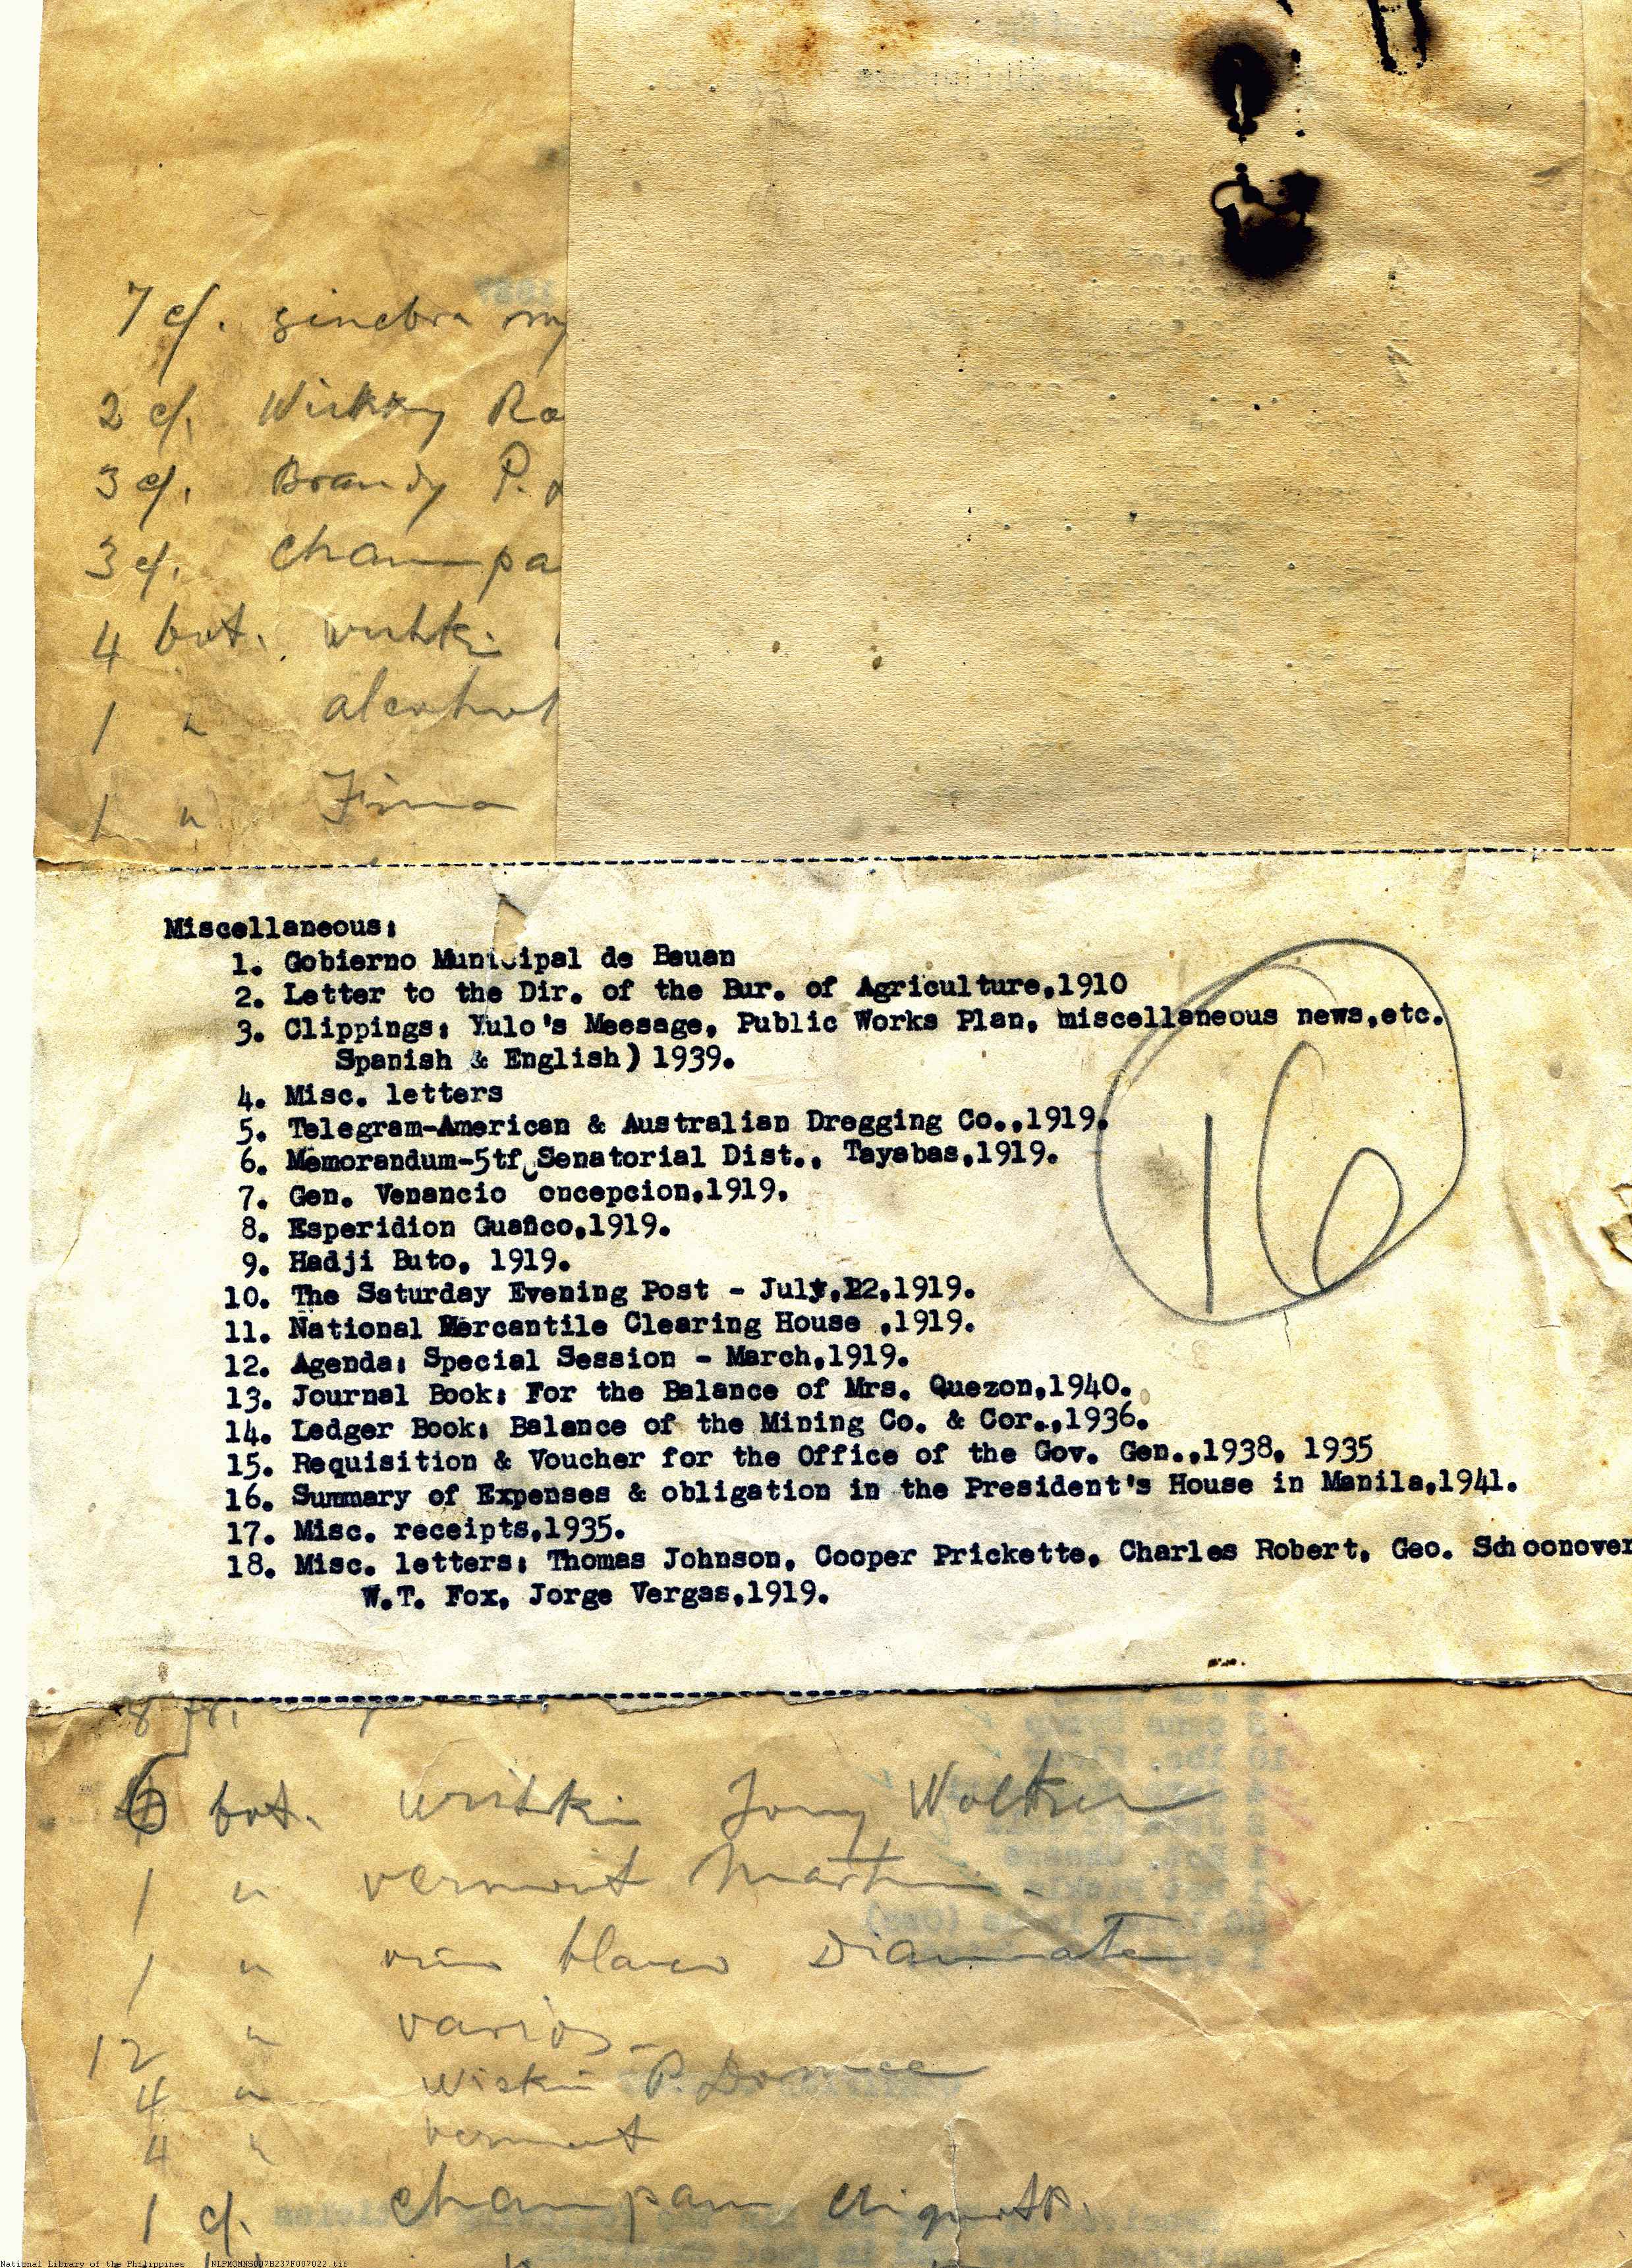 7 c/. ginebra
2 c/. Wiskky Ro
3 c/. Brandy P.
3 c/. Champa
4 bot. wishki
1 " alcohol
1 "
Miscellaneous:
1. Gobierno Municipal de Bauan
2. Letter to the Dir. of the Bur. of Agriculture,1910
3. Clippings: Yulo's Meesage, Public Works Plan, miscellaneous news,etc.
Spanish & English) 1939.
4. Misc. letters
5. Telegram-American & Australian Dregging Co.,1919.
6. Memorandum-5tf Senatorial Dist., Tayabas,1919.
7. Gen. Venancio oncepcion,1919.
8. Esperidion Guañco,1919.
9. Hadji Buto, 1919.
10. The Saturday Evening Post - July,22,1919.
11. National Mercantile Clearing House ,1919.
12. Agenda: Special Session - March,1919.
13. Journal Book: For the Balance of Mrs. Quezon,1940.
14. Ledger Book: Balance of the Mining Co. & Cor.,1936.
15. Requisition & Voucher for the Office of the Gov. Gen.,1938, 1935
16. Summary of Expenses & obligation in the President's House in Manila,1941.
17. Misc. receipts,1935.
18. Misc. letters: Thomas Johnson, Cooper Prickette, Charles Robert, Geo. Schoonover
W.T. Fox, Jorge Vergas,1919.
16
6 bot. wishki Jony Wolker
1 " vermout Martini
1 " vino blanco Diamante
12 " varios
4 " Wiski P. Domec
4 " vermut
1 c/. champan
National Library of the Philippines NLPMQMNS007B237F007022.tif